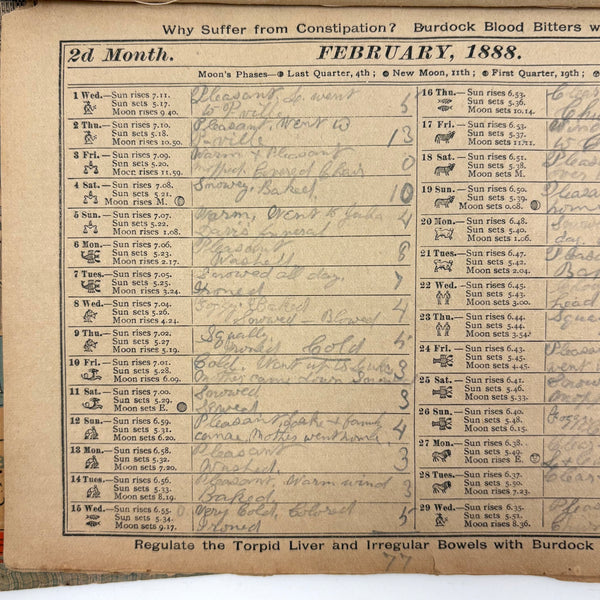 Why Suffer from Constipation? Burdock Blood Bitters w
2d Month. FEBRUARY, 1888.
Moon's Phases— Last Quarter, 4th; New Moon, 11th; First Quarter, 19th;
1 Wed.—Sun rises 7.11. Pleasant. went
Sun sets 5.17. to P ville 5
Moon rises 9.40.
2 Thu.—Sun rises 7.10. Pleasant, Went to
Sun sets 5.18. 13
Moon rises 10.50. ville
3 Fri.—Sun rises 7.09. Warm & Pleasant
Sun sets 5.20. 0
Moon rises 11.59. Covered Chair
4 Sat.—Sun rises 7.08. Snowey. Baked
Sun sets 5.21. 10
Moon rises M.
5 Sun.—Sun rises 7.07. Warm, Went to
Sun sets 5.22. 4
Moon rises 1.08. funeral
6 Mon.—Sun rises 7.06. Pleasant
Sun sets 5.23. 6
Moon rises 2.17. Washed
7 Tues.—Sun rises 7.05. Snowed all day,
Sun sets 5.25. 7
Moon rises 3.24. Ironed
8 Wed.—Sun rises 7.04. Baked
Sun sets 5.26. 4
Moon rises 4.24. Snowed - Blowed
9 Thu.—Sun rises 7.02. Squally
Sun sets 5.27. Cold 5
Moon rises 5.19.
10 Fri.—Sun rises 7.01. Cold,
Sun sets 5.28. 3
Moon rises 6.09. Mother came down
11 Sat.—Sun rises 7.00. Snowed
Sun sets 5.29. 3
Moon sets E. Sewed
12 Sun.—Sun rises 6.59. Pleasant, & family
Sun sets 5.31. 4
Moon sets 6.20. came, Mother went home,
13 Mon.—Sun rises 6.58. Pleasant
Sun sets 5.32. 3
Moon sets 7.20. Washed
14 Tues.—Sun rises 6.56. Pleasant, Warm wind
Sun sets 5.33. 3
Moon sets 8.19. Baked
15 Wed.—Sun rises 6.55. Very Cold, Colored
Sun sets 5.34. 5
Moon sets 9.17. Ironed
16 Thu.—Sun rises 6.53.
Sun sets 5.36.
Moon sets 10.14.
17 Fri.—Sun rises 6.52.
Sun sets 5.37.
Moon sets 11.11.
18 Sat.—Sun rises 6.51. Pleas
Sun sets 5.38.
Moon sets M.
19 Sun.—Sun rises 6.50. Pleasa
Sun sets 5.39.
Moon sets 0.08.
20 Mon.—Sun rises 6.48.
Sun sets 5.40.
Moon sets 1.06. day.
21 Tues.—Sun rises 6.47.
Sun sets 5.42.
Moon sets 2.04.
22 Wed.—Sun rises 6.45.
Sun sets 5.43.
Moon sets 3.00. head
23 Thu.—Sun rises 6.44.
Sun sets 5.44.
Moon sets 3.54.
24 Fri.—Sun rises 6.43. Pleasan
Sun sets 5.45.
Moon sets 4.45. went
25 Sat.—Sun rises 6.41. Snow
Sun sets 5.46.
Moon sets 5.33.
26 Sun.—Sun rises 6.40. Foggy
Sun sets 5.48.
Moon sets 6.15.
27 Mon.—Sun rises 6.38.
Sun sets 5.49.
Moon rises E.
28 Tues.—Sun rises 6.37. Clear
Sun sets 5.50.
Moon rises 7.23.
29 Wed.—Sun rises 6.35. Pleas
Sun sets 5.51.
Moon rises 8.36.
Regulate the Torpid Liver and Irregular Bowels with Burdock
77